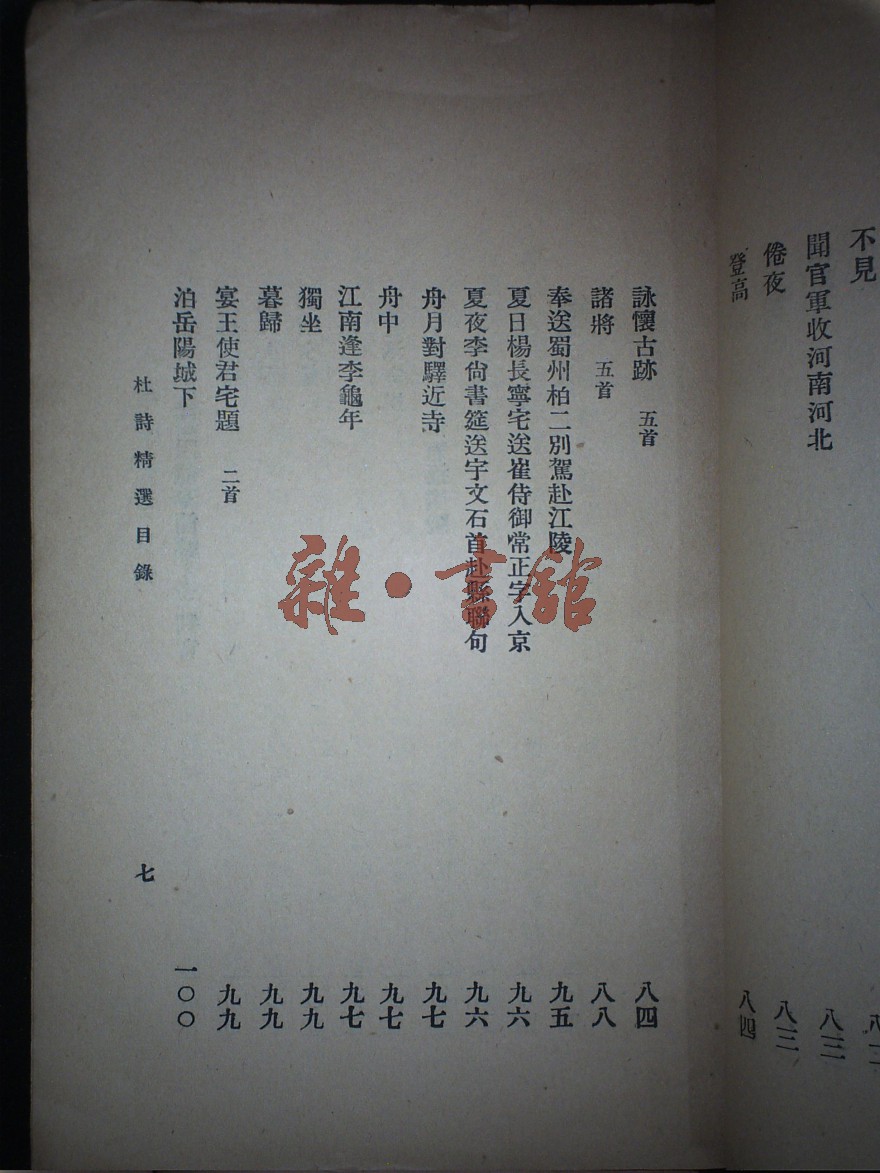 不見
聞官軍收河南河北 八三
倦夜 八三
登高 八四
詠懷古跡 五首 八四
諸將 五首 八八
奉送蜀州柏二別駕赴江陵 九五
夏日楊長寧宅送崔侍御常正字入京 九六
夏夜李尙書筵送宇文石首赴縣聯句 九六
舟月對驛近寺 九七
舟中 九七
江南逢李龜年 九七
獨坐 九九
暮歸 九九
宴王使君宅題 二首 九九
泊岳陽城下 一〇〇
杜詩精選目錄 七
雜·書館